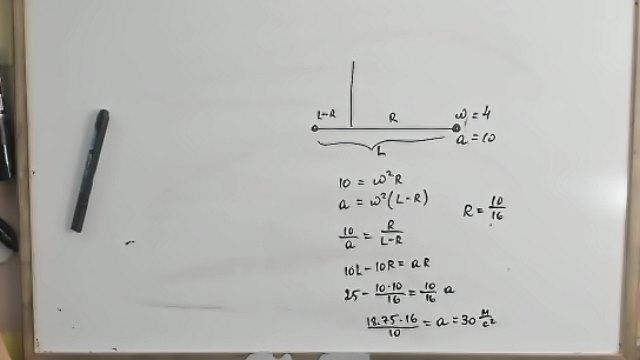 L-R R ω = 4
a = 10
L
10 = ω²R
a = ω²(L-R)
R = 10/16
10/a = R/(L-R)
10L - 10R = aR
25 - 10·10/16 = 10/16 a
18.75·16/10 = a = 30 м/с²